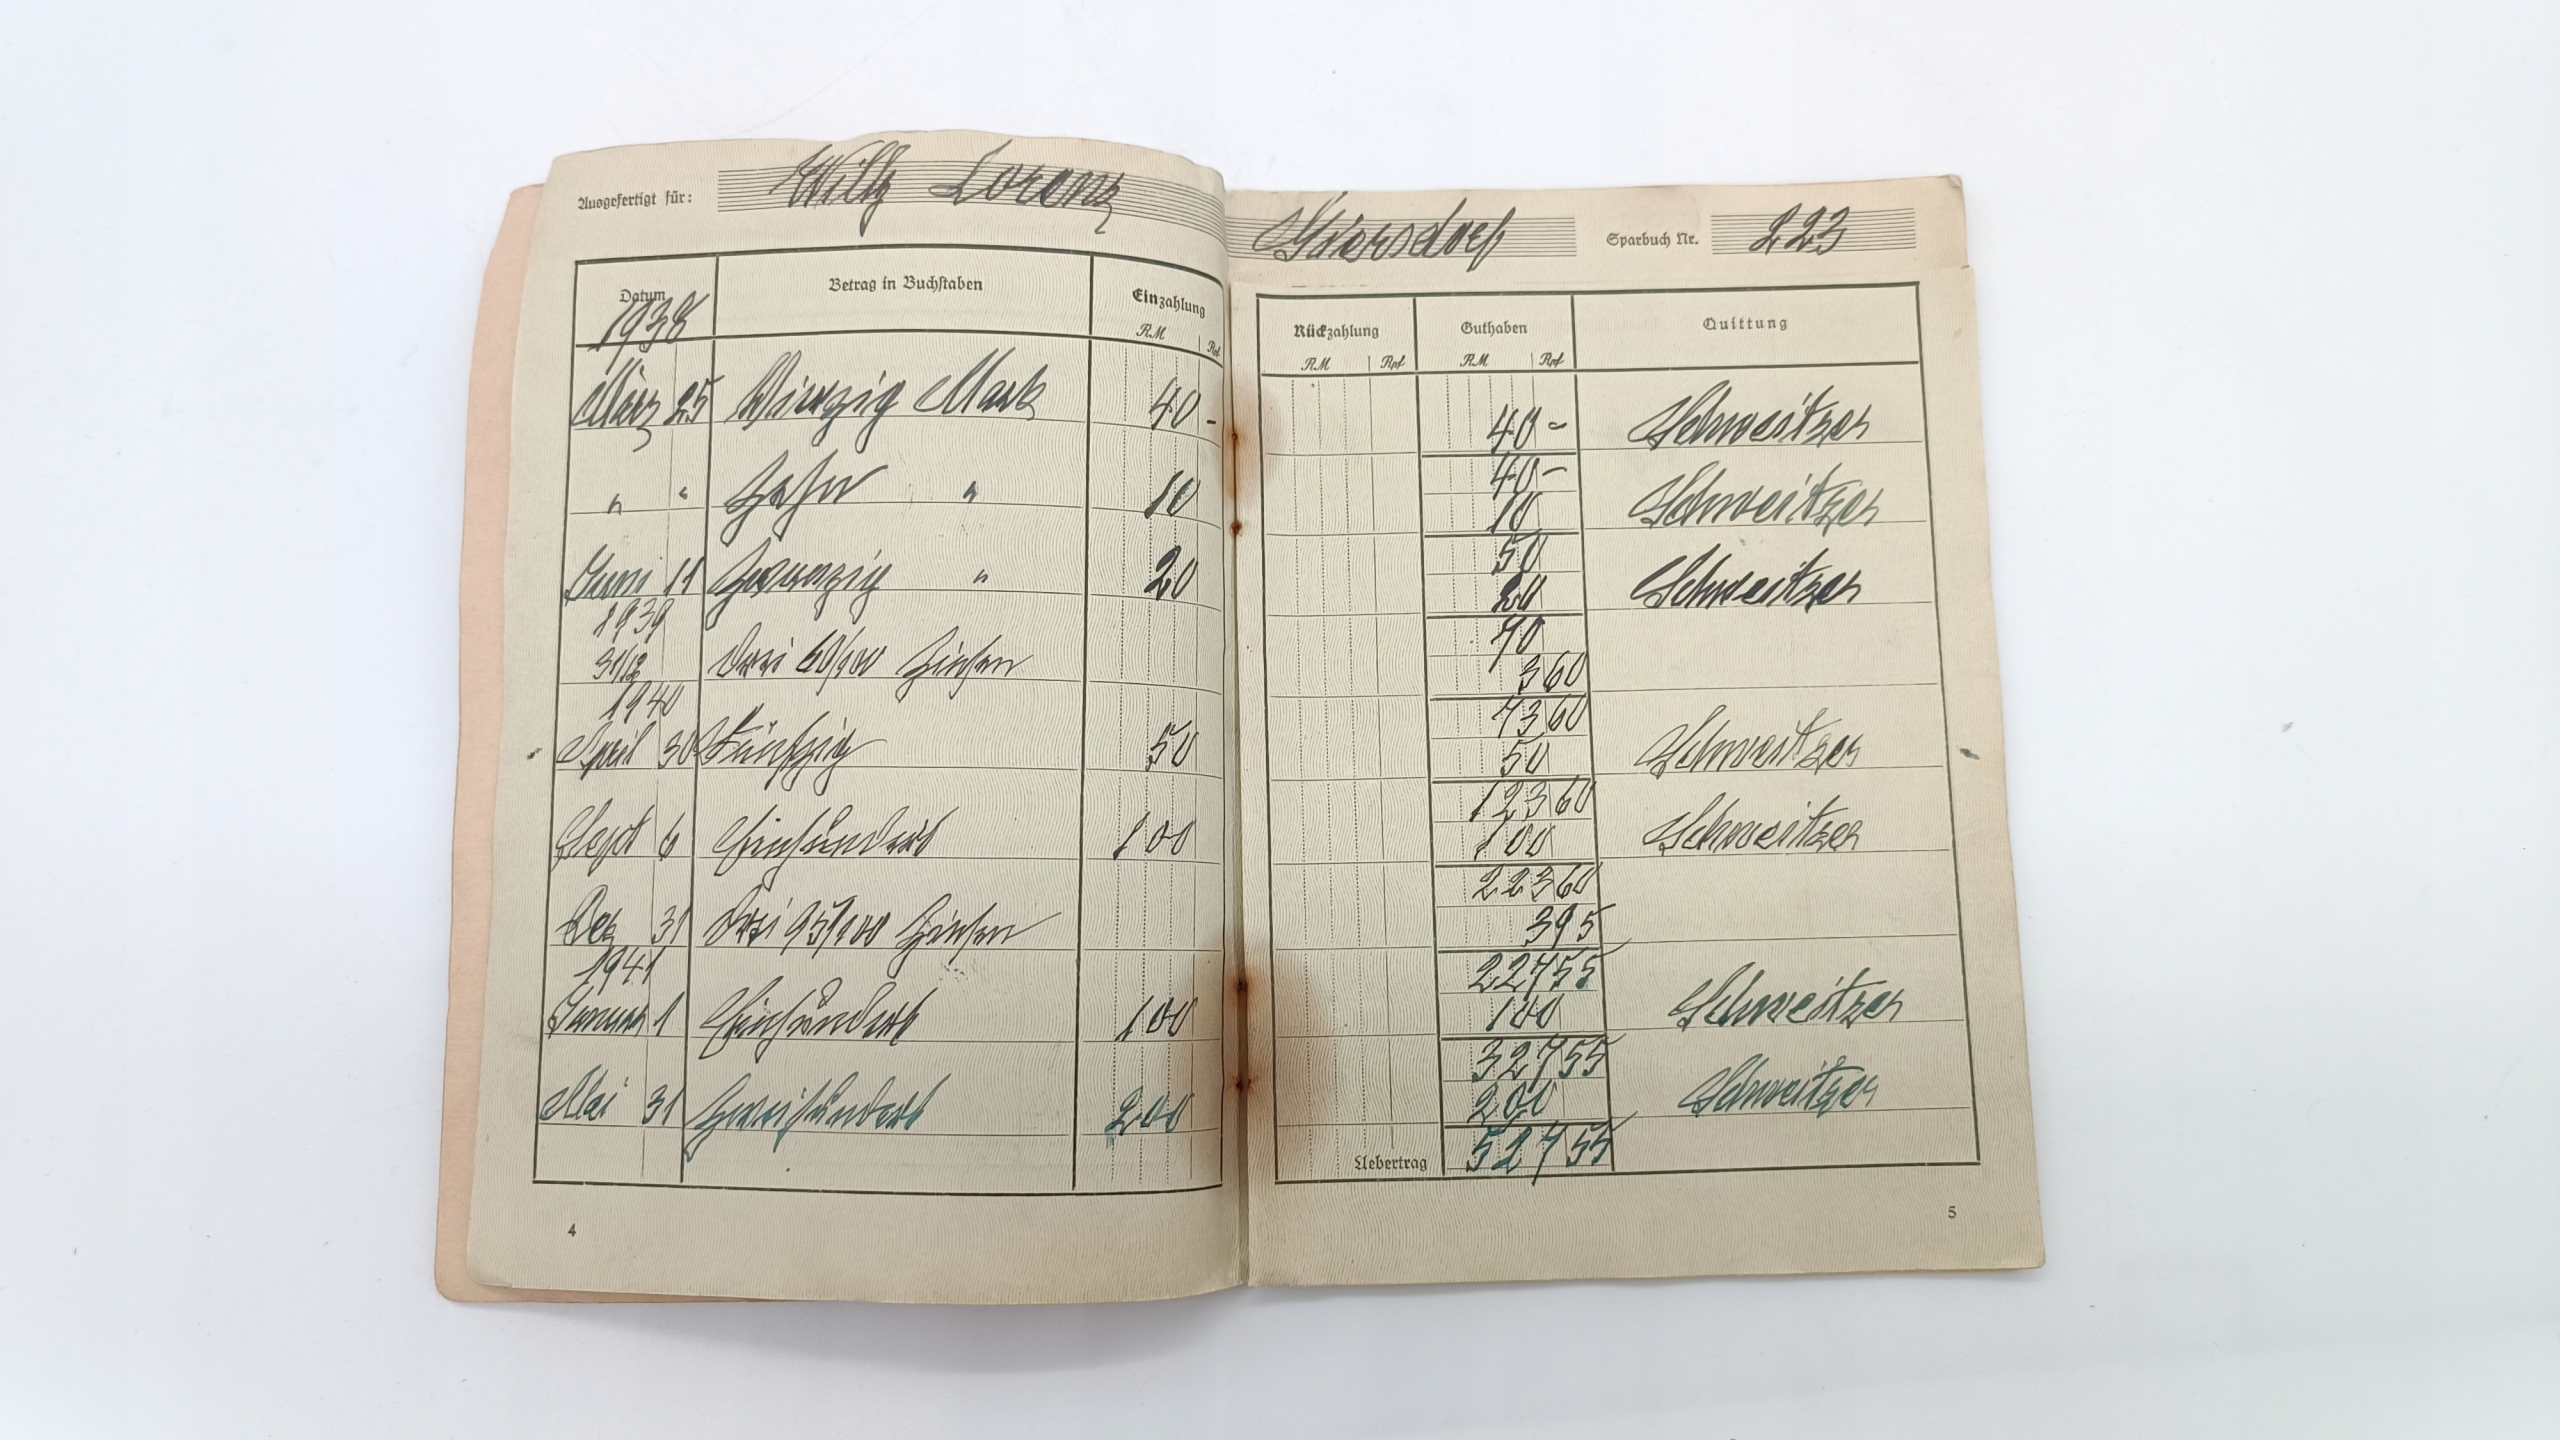 Ausgefertigt für: Willy Lorenz
Giersdorf Sparbuch Nr. 223
Datum Betrag in Buchstaben Einzahlung
1938 RM Rpf
März 25 Vierzig Mark 40 -
" " Zehn " 10
Juni 11 Zwanzig " 20
1939
31/12 Drei 60/100 Zinsen
1940
April 30 Fünfzig 50
Sept 6 Einhundert 100
Dez 31 Drei 95/100 Zinsen
1941
Januar 1 Einhundert 100
Mai 31 Zweihundert 200
4
Rückzahlung Guthaben Quittung
RM Rpf RM Rpf
40 - Schweitzer
40 -
10 Schweitzer
50
20 Schweitzer
70
3 60
73 60
50 Schweitzer
123 60
100 Schweitzer
223 60
3 95
227 55
100 Schweitzer
327 55
200 Schweitzer
Uebertrag 527 55
5